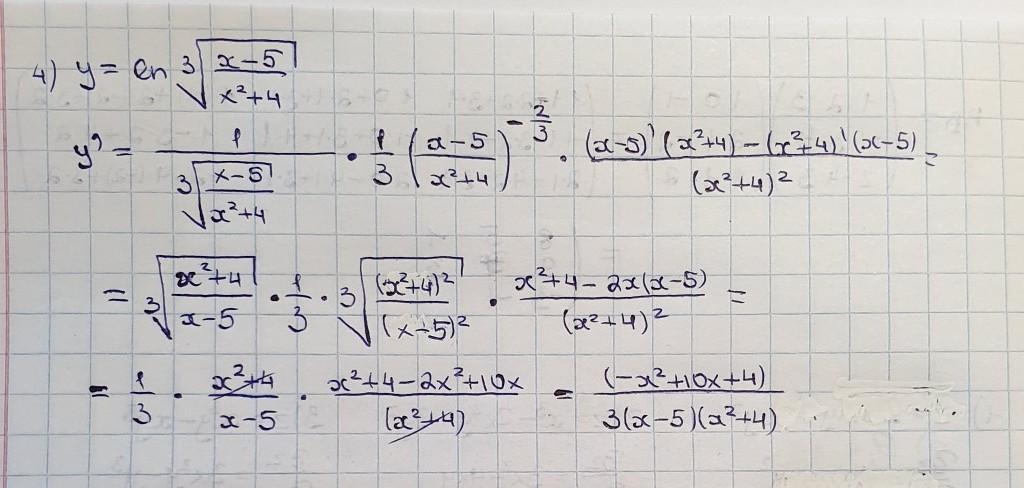 4) y = ln ∛((x-5)/(x²+4))
y' = 1/∛((x-5)/(x²+4)) · 1/3 ((x-5)/(x²+4))^(-2/3) · ((x-5)'(x²+4) - (x²+4)'(x-5))/(x²+4)² =
= ∛((x²+4)/(x-5)) · 1/3 · ∛((x²+4)²/(x-5)²) · (x²+4-2x(x-5))/(x²+4)² =
= 1/3 · (x²+4)/(x-5) · (x²+4-2x²+10x)/(x²+4) = (-x²+10x+4)/(3(x-5)(x²+4))